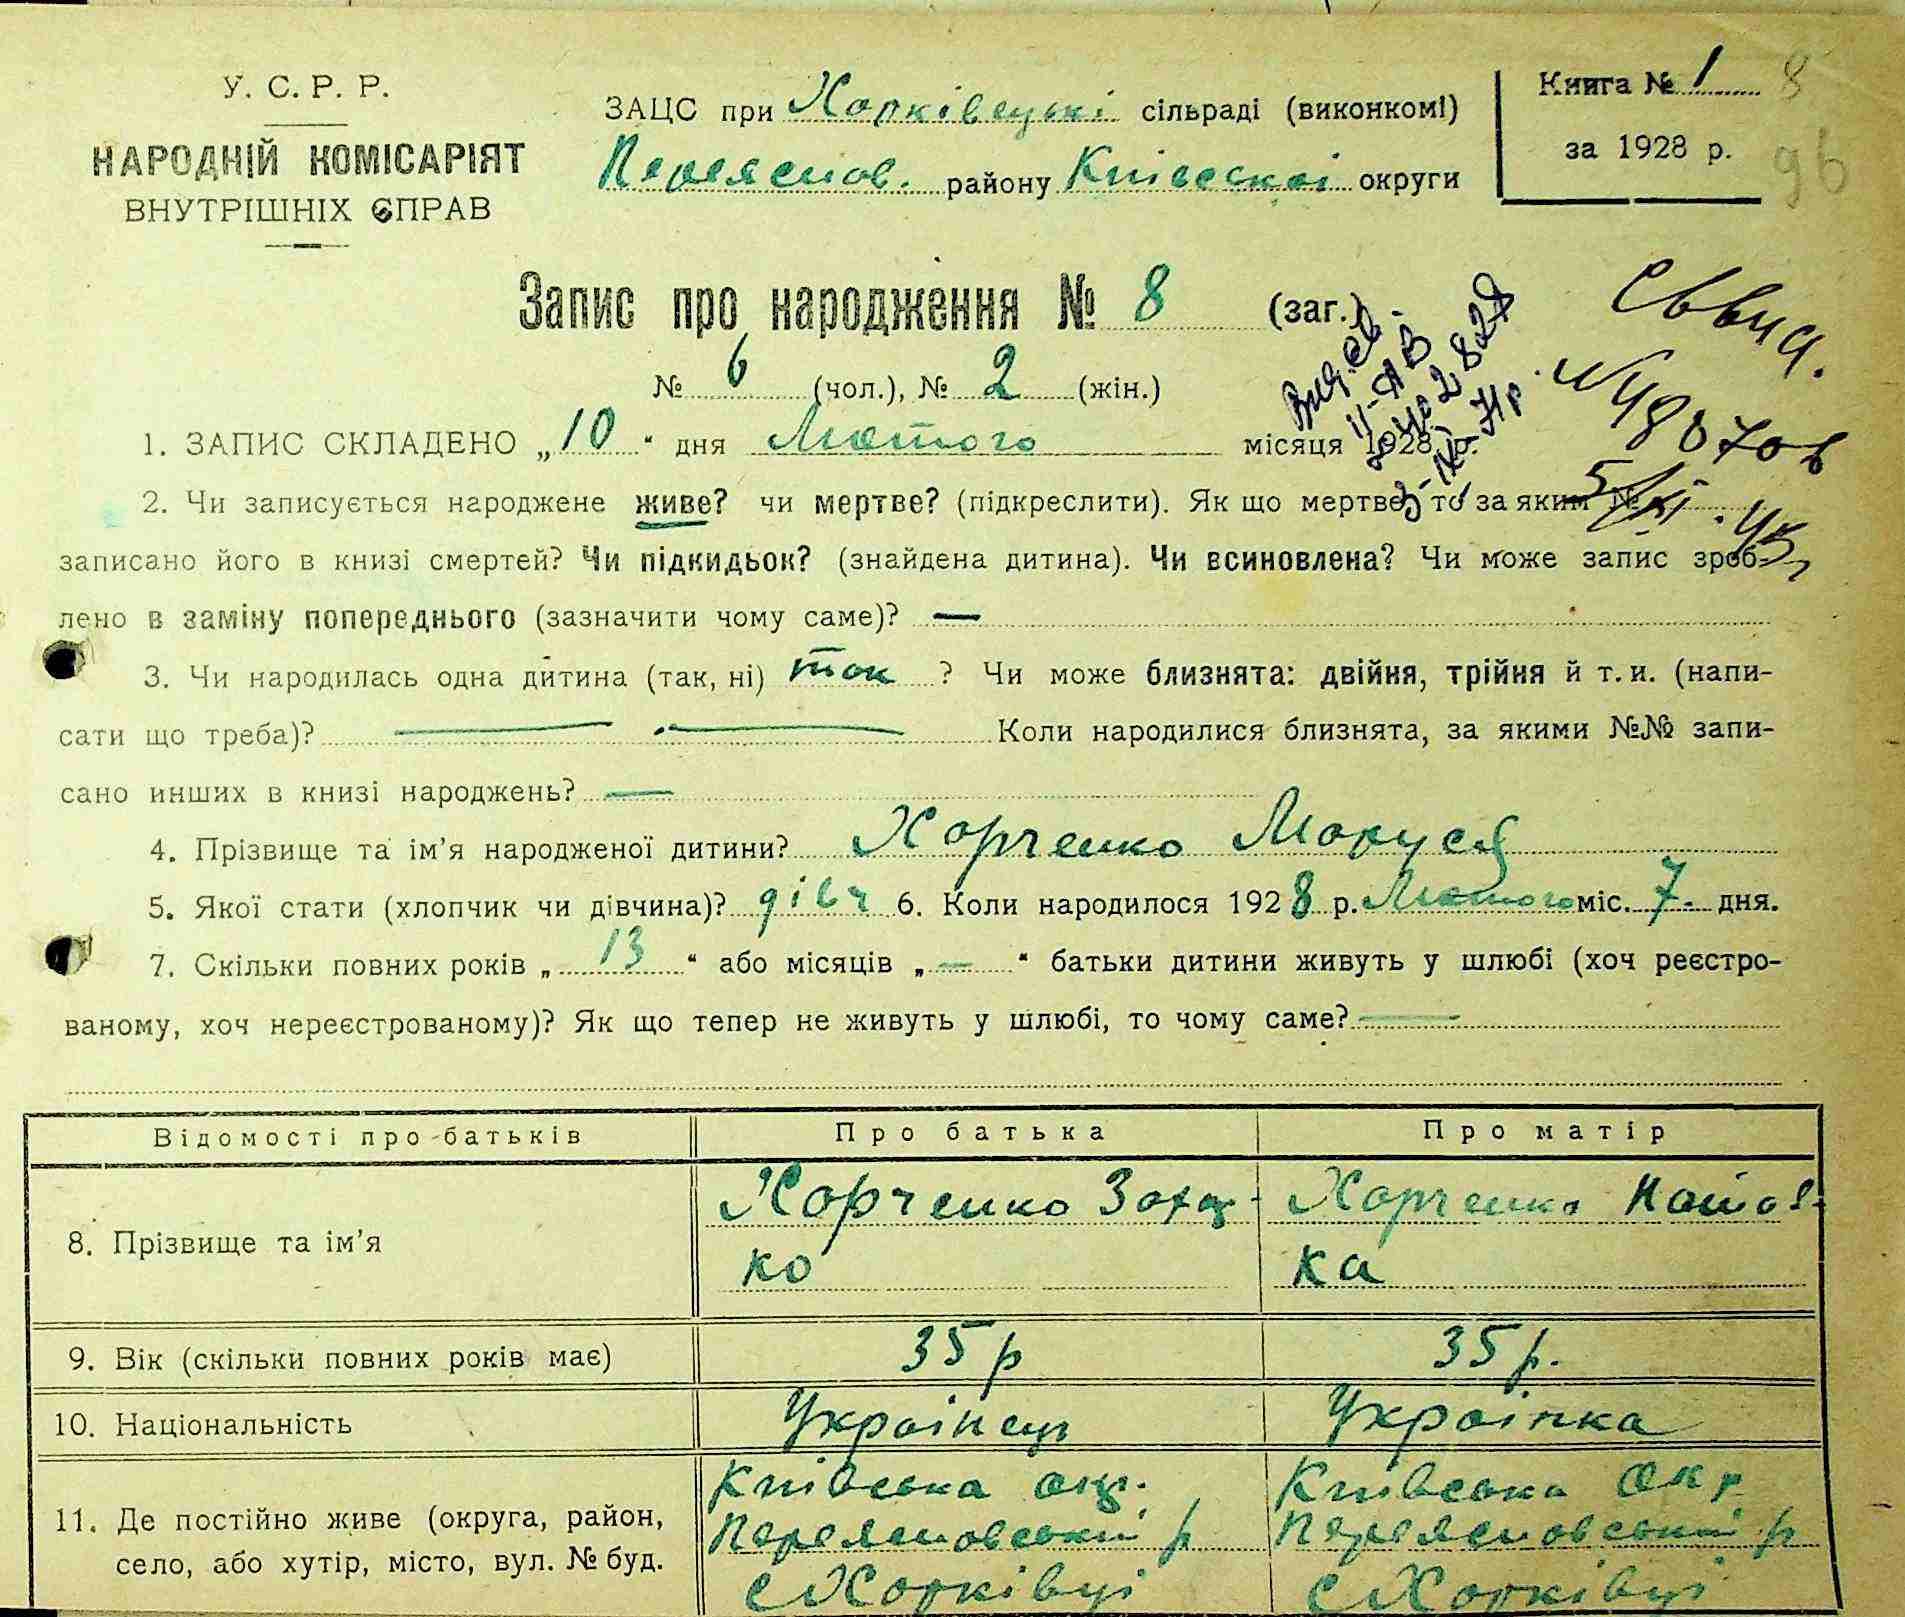 У. С. Р. Р.
НАРОДНІЙ КОМІСАРІЯТ
ВНУТРІШНІХ СПРАВ
ЗАЦС при Харківецькі сільраді (виконкомі)
Переяслов. району Київськоі округи
Книга № 1
за 1928 р.
8
96
Запис про народження № 8 (заг.)
№ 6 (чол.), № 2 (жін.)
1. ЗАПИС СКЛАДЕНО „10“ дня Лютого місяця 1928 р.
2. Чи записується народжене живе? чи мертве? (підкреслити). Як що мертве, то за яким №
записано його в книзі смертей? Чи підкидьок? (знайдена дитина). Чи всиновлена? Чи може запис зроб-
лено в заміну попереднього (зазначити чому саме)? —
3. Чи народилась одна дитина (так, ні) так ? Чи може близнята: двійня, трійня й т. и. (напи-
сати що треба)? — — Коли народилися близнята, за якими №№ запи-
сано инших в книзі народжень? —
4. Прізвище та ім’я народженої дитини? Харченко Маруся
5. Якої стати (хлопчик чи дівчина)? дівч 6. Коли народилося 1928 р. Лютого міс. 7. дня.
7. Скільки повних років „13“ або місяців „—“ батьки дитини живуть у шлюбі (хоч реєстро-
ваному, хоч нереєстрованому)? Як що тепер не живуть у шлюбі, то чому саме? —
Відомості про батьків Про батька Про матір
8. Прізвище та ім’я Харченко Захар- Харченко Натал-
ко ка
9. Вік (скільки повних років має) 35 р 35 р.
10. Національність Украінець Украінка
11. Де постійно живе (округа, район, село, або хутір, місто, вул. № буд.
Київська окр. Київська окр
Переясловський р Переясловський р
с Харківці с Харківці